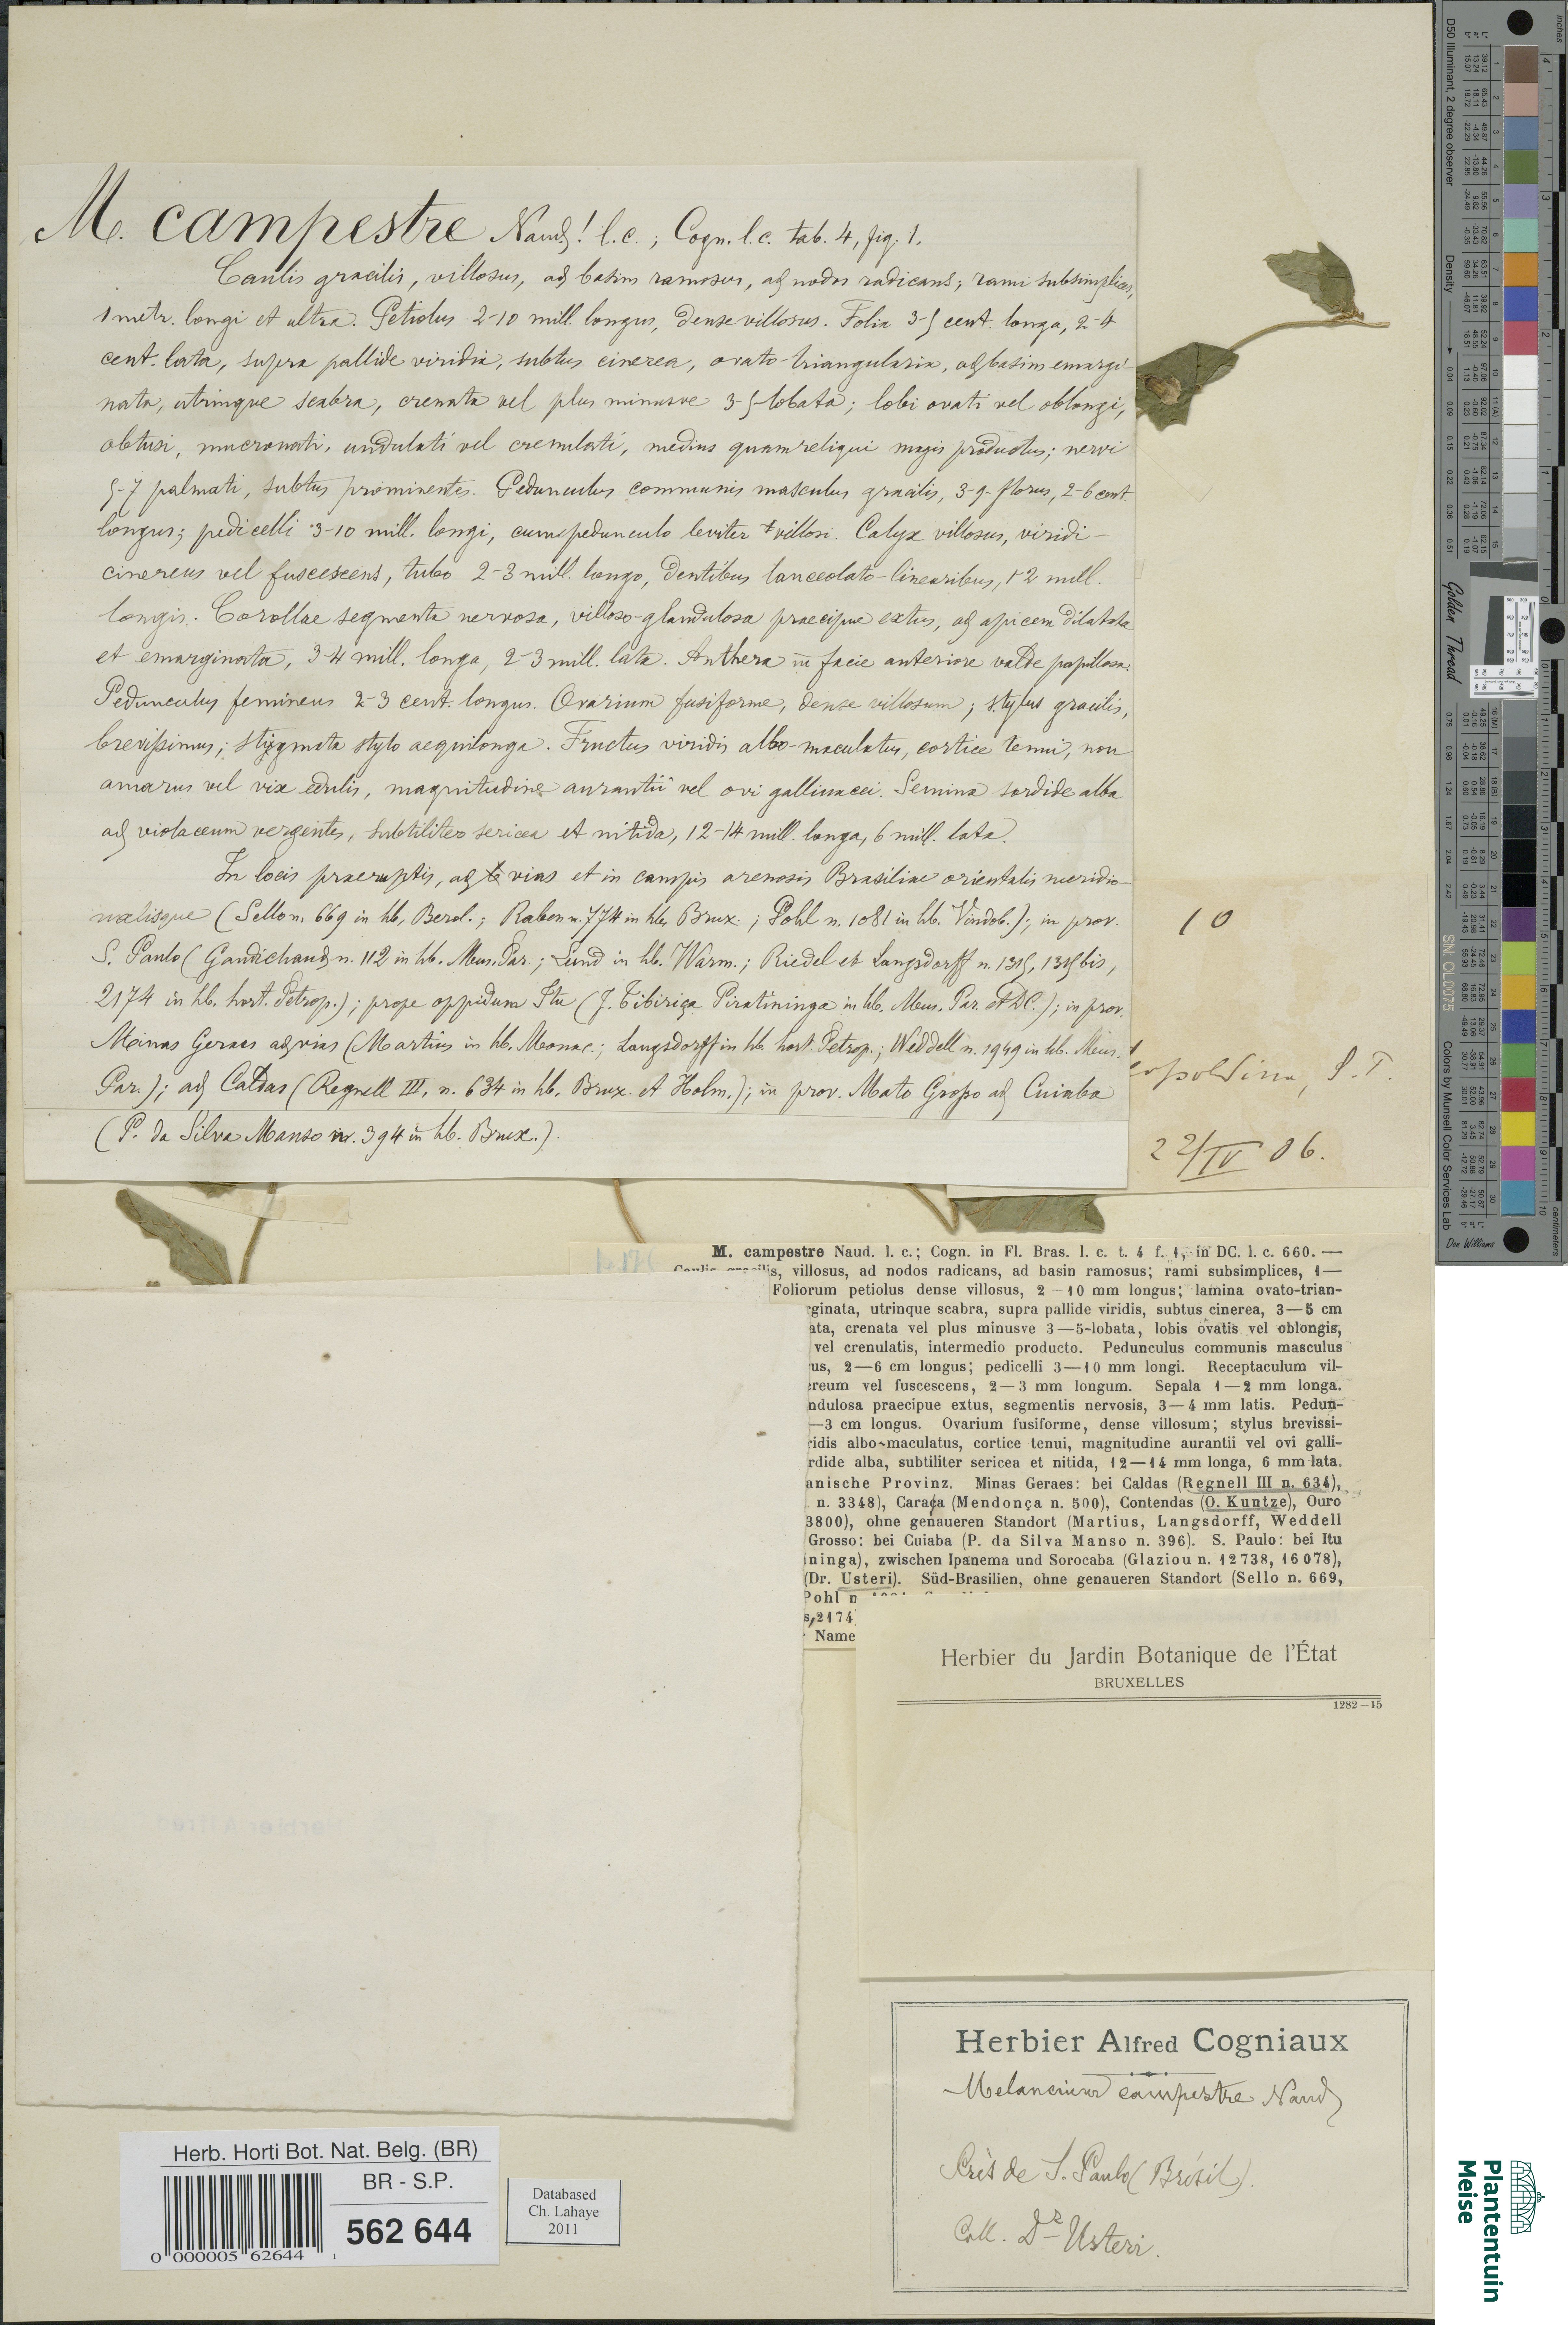 M. campestre Naud! l.c.; Cogn. l.c. tab. 4, fig. 1.
Caulis gracilis, villosus, ad basim ramosus, ad nodos radicans; rami subsimplices,
1 metr. longi et ultra. Petiolus 2-10 mill. longus, dense villosus. Folia 3-5 cent. longa, 2-4
cent. lata, supra pallide viridia, subtus cinerea, ovato-triangularia, ad basim emargi-
nata, utrinque scabra, crenata vel plus minusve 3-5-lobata; lobi ovati vel oblongi,
obtusi, mucronati, undulati vel crenulati, medius quam reliqui magis productus; nervi
5-7 palmati, subtus prominentes. Pedunculus communis masculus gracilis, 3-9-florus, 2-6 cent.
longus; pedicelli 3-10 mill. longi, cum pedunculo leviter villosi. Calyx villosus, viridi-
cinereus vel fuscescens, tubo 2-3 mill. longo, dentibus lanceolato-linearibus, 1-2 mill.
longis. Corollae segmenta nervosa, villoso-glandulosa praecipue extus, ad apicem dilatata
et emarginata, 3-4 mill. longa, 2-3 mill. lata. Anthera in facie anteriore valde papillosa.
Pedunculus femineus 2-3 cent. longus. Ovarium fusiforme, dense villosum; stylus gracilis,
brevissimus; stigmata stylo aequilonga. Fructus viridis albo-maculatus, cortice tenui, non
amarus vel vix edulis, magnitudine aurantii vel ovi gallinacei. Semina sordide alba
ad violaceum vergentes, subtiliter sericea et nitida, 12-14 mill. longa, 6 mill. lata.
In locis praeruptis, ad vias et in campis arenosis Brasiliae orientalis meridio-
nalisque (Sello n. 669 in hb. Berol.; Raben n. 774 in hb. Brux.; Pohl n. 1081 in hb. Vindob.); in prov.
S. Paulo (Gaudichaud n. 112 in hb. Mus. Par.; Lund in hb. Warm.; Riedel et Langsdorff n. 1315, 1315 bis,
2174 in hb. hort. Petrop.); prope oppidum Itu (J. Tibiriça Piratininga in hb. Mus. Par. et DC.); in prov.
Minas Geraes ad vias (Martius in hb. Monac.; Langsdorff in hb. hort. Petrop.; Weddell n. 1949 in hb. Mus.
Par.); ad Caldas (Regnell III, n. 634 in hb. Brux. et Holm.); in prov. Mato Grosso ad Cuiaba
(P. da Silva Manso n. 394 in hb. Brux.).
10
opoldina, S. T.
22/IV 06.
M. campestre Naud. l. c.; Cogn. in Fl. Bras. l. c. t. 4 f. 1, in DC. l. c. 660. —
Caulis gracilis, villosus, ad nodos radicans, ad basin ramosus; rami subsimplices, 1—
Foliorum petiolus dense villosus, 2—10 mm longus; lamina ovato-trian-
rginata, utrinque scabra, supra pallide viridis, subtus cinerea, 3—5 cm
ata, crenata vel plus minusve 3—5-lobata, lobis ovatis vel oblongis,
vel crenulatis, intermedio producto. Pedunculus communis masculus
us, 2—6 cm longus; pedicelli 3—10 mm longi. Receptaculum vil-
ereum vel fuscescens, 2—3 mm longum. Sepala 1—2 mm longa.
ndulosa praecipue extus, segmentis nervosis, 3—4 mm latis. Pedun-
—3 cm longus. Ovarium fusiforme, dense villosum; stylus brevissi-
ridis albo-maculatus, cortice tenui, magnitudine aurantii vel ovi galli-
rdide alba, subtiliter sericea et nitida, 12—14 mm longa, 6 mm lata.
anische Provinz. Minas Geraes: bei Caldas (Regnell III n. 634),
n. 3348), Caraça (Mendonça n. 500), Contendas (O. Kuntze), Ouro
3800), ohne genaueren Standort (Martius, Langsdorff, Weddell
Grosso: bei Cuiaba (P. da Silva Manso n. 396). S. Paulo: bei Itu
ininga), zwischen Ipanema und Sorocaba (Glaziou n. 12738, 16078),
(Dr. Usteri). Süd-Brasilien, ohne genaueren Standort (Sello n. 669,
Pohl n
s, 2174
Name
Herbier du Jardin Botanique de l'État
BRUXELLES
1282—15
Herbier Alfred Cogniaux
Melancium campestre Naud
Près de S. Paulo (Brésil).
Coll. Dr Usteri.
Herb. Horti Bot. Nat. Belg. (BR)
BR - S.P.
562 644
0 000005 62644 1
Databased
Ch. Lahaye
2011
Plantentuin
Meise
D50 Illuminant, 2 degree observer
Density
Golden Thread
SN: OL0075
Colors by Munsell Color Services Lab
Don Williams
inches
centimeters